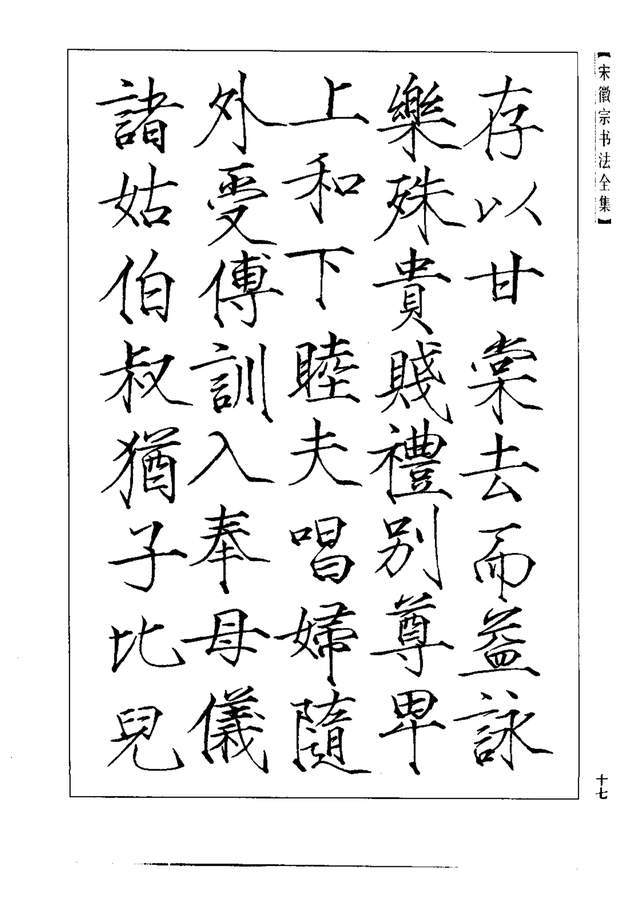 【宋徽宗书法全集】
存以甘棠去而益詠
樂殊貴賤禮別尊卑
上和下睦夫唱婦隨
外受傅訓入奉母儀
諸姑伯叔猶子比兒
十七